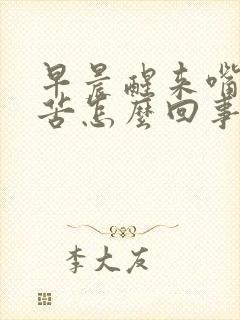 早晨醒来嘴
苦怎麼回事
李大友